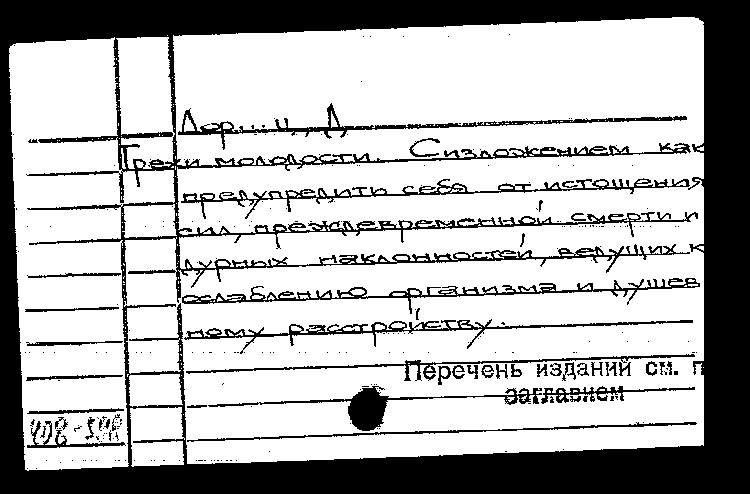 Лор...ц, Д.
Грехи молодости. С изложением как
предупредить себя от истощения
сил, преждевременной смерти и
дурных наклонностей, ведущих к
ослаблению организма и душев
ному расстройству.
Перечень изданий см. п
заглавием